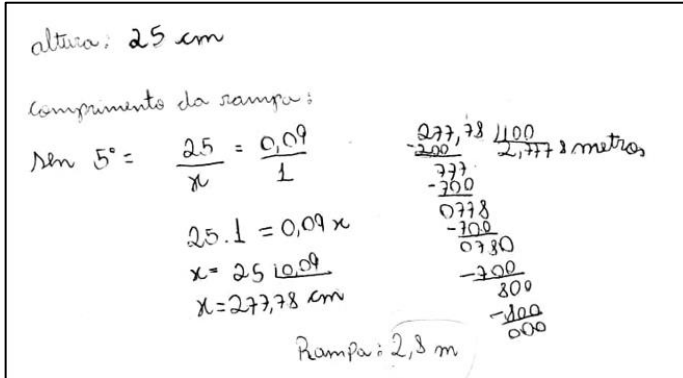 altura: 25 cm
comprimento da rampa:
sen 5° = 25/x = 0,09/1
25.1 = 0,09 x
x = 25 | 0,09
x = 277,78 cm
277,78 | 100
-200 2,7778 metros
777
-700
0778
-700
0780
-700
800
-800
000
Rampa: 2,8 m